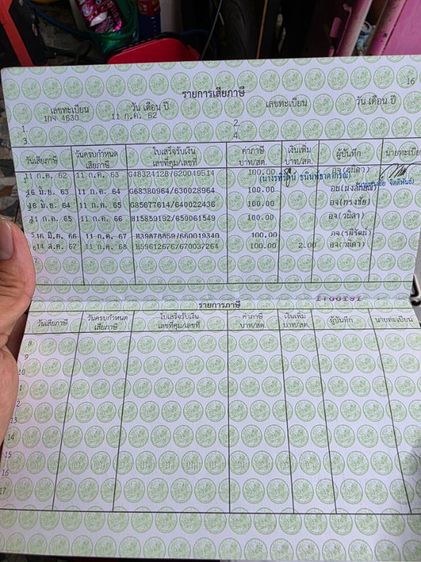 16
รายการเสียภาษี
เลขทะเบียน วัน เดือน ปี เลขทะเบียน วัน เดือน ปี
1. 1กจ 4630 11 ก.ค. 62 2.
3. 4.
วันเสียภาษี วันครบกำหนดเสียภาษี ใบเสร็จรับเงิน เลขที่คุม/เลขที่ ค่าภาษี บาท/สต. เงินเพิ่ม บาท/สต. ผู้บันทึก นายทะเบียน
11 ก.ค. 62 11 ก.ค. 63 G48324128/620049514 100.00
16 มิ.ย. 63 11 ก.ค. 64 G68380964/630028964 100.00
16 มิ.ย. 64 11 ก.ค. 65 G85677614/640022436 100.00 อจ(ทรงชัย)
11 ก.ค. 66 815859192/650061549 100.00 อจ(วนิดา)
16 มิ.ย. 66 11 ก.ค. 67 100.00
14 ส.ค. 67 11 ก.ค. 68 H59612676/670037264 100.00 2.00
1700191
รายการภาษี
วันเสียภาษี วันครบกำหนดเสียภาษี ใบเสร็จรับเงิน เลขที่คุม/เลขที่ ค่าภาษี บาท/สต. เงินเพิ่ม บาท/สต. ผู้บันทึก นายทะเบียน
8
9
10
14
15
16
17